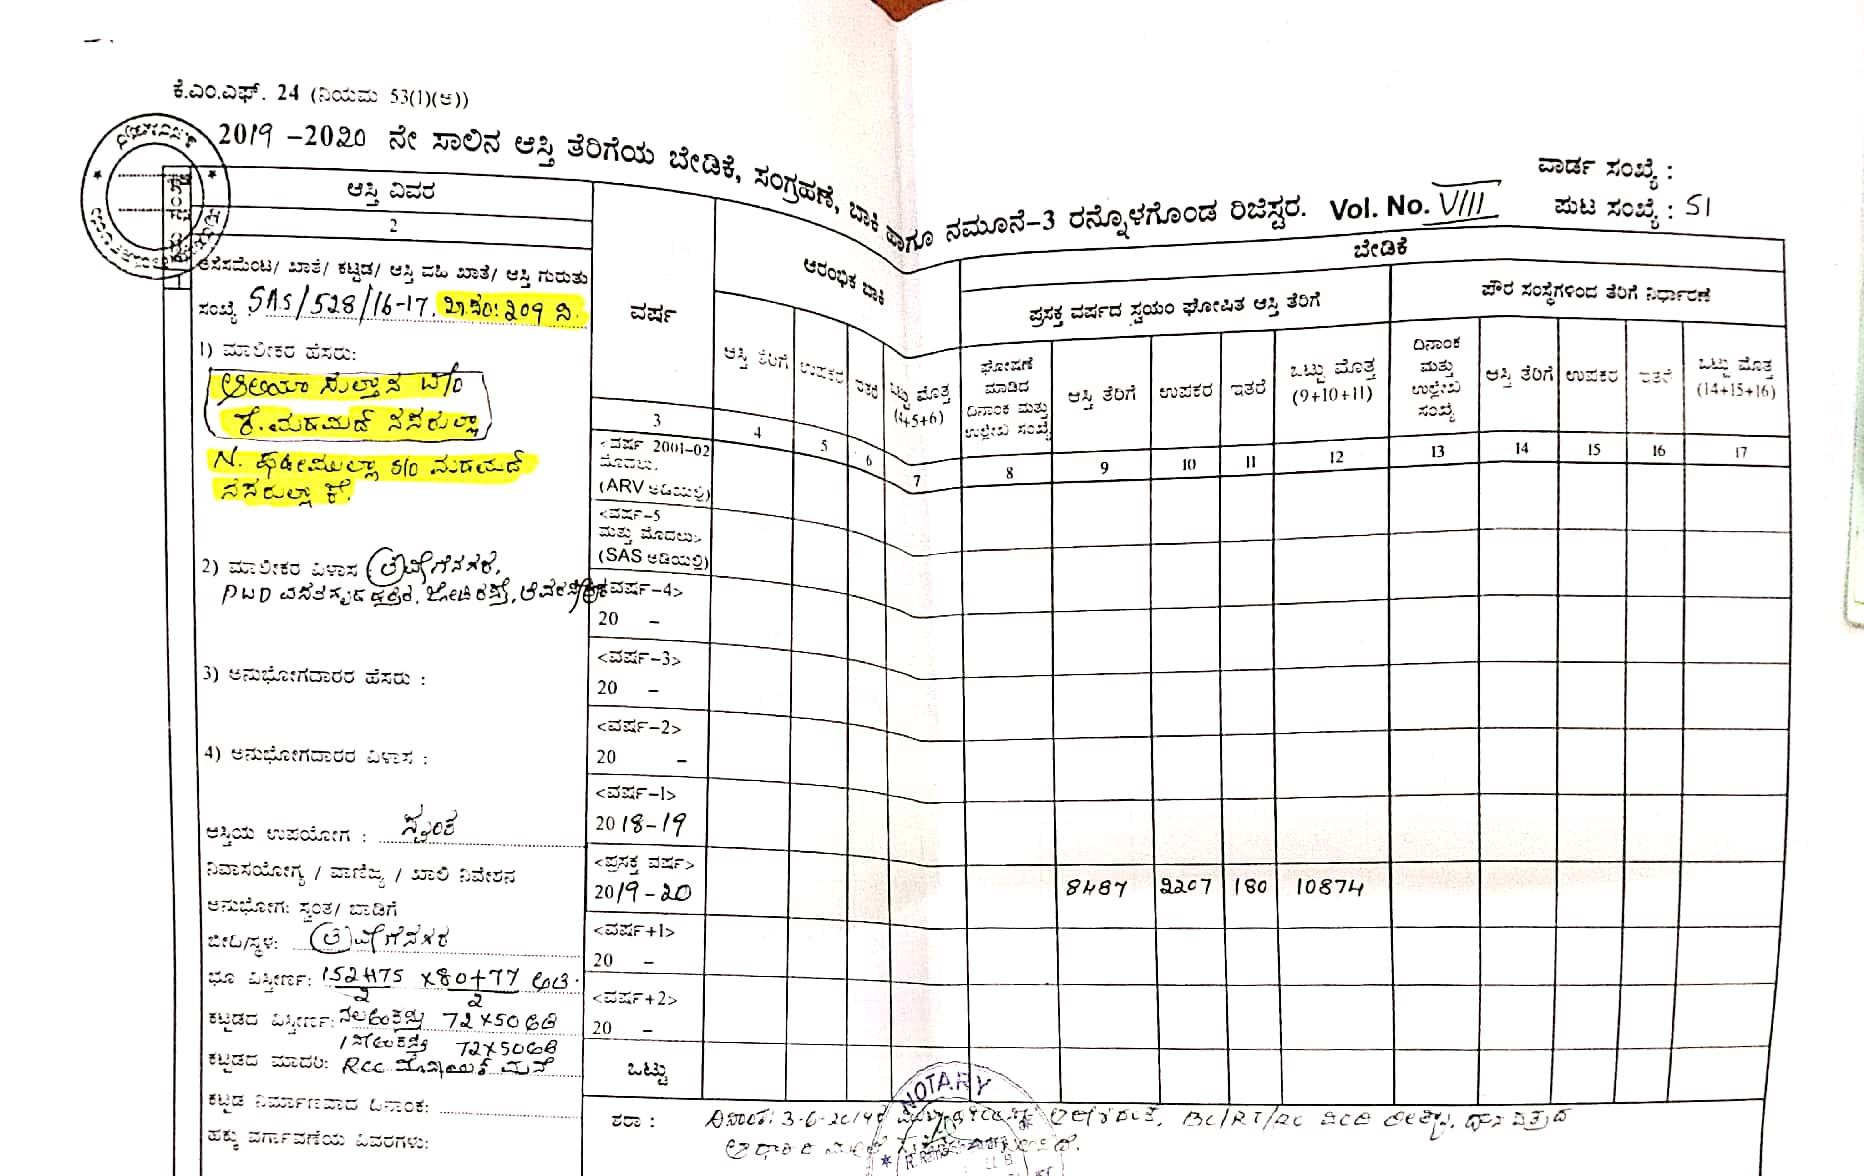 ಕೆ.ಎಂ.ಎಫ್. 24 (ನಿಯಮ 53(1)(ಅ))
2019 -2020 ನೇ ಸಾಲಿನ ಆಸ್ತಿ ತೆರಿಗೆಯ ಬೇಡಿಕೆ, ಸಂಗ್ರಹಣೆ, ಬಾಕಿ ಹಾಗೂ ನಮೂನೆ-3 ರನ್ನೊಳಗೊಂಡ ರಿಜಿಸ್ಟರ. Vol. No. VIII
ವಾರ್ಡ ಸಂಖ್ಯೆ :
ಪುಟ ಸಂಖ್ಯೆ : 51
ಆಸ್ತಿ ವಿವರ
2
ಅಸೆಸಮೆಂಟ/ ಖಾತೆ/ ಕಟ್ಟಡ/ ಆಸ್ತಿ ವಹಿ ಖಾತೆ/ ಆಸ್ತಿ ಗುರುತು
ಸಂಖ್ಯೆ SAS/528/16-17, ಖಾ.ನಂ: 209 ನಿ.
1) ಮಾಲೀಕರ ಹೆಸರು:
ಸುಲ್ತಾನ
ಕೆ. ಮಹಮದ್ ನಸರುಲ್ಲಾ
N. S/o ಮಹಮದ್
ನಸರುಲ್ಲಾ ಕೆ.
2) ಮಾಲೀಕರ ವಿಳಾಸ :
PWD
3) ಅನುಭೋಗದಾರರ ಹೆಸರು :
4) ಅನುಭೋಗದಾರರ ವಿಳಾಸ :
ಆಸ್ತಿಯ ಉಪಯೋಗ : ಸ್ವಂತ
ನಿವಾಸಯೋಗ್ಯ / ವಾಣಿಜ್ಯ / ಖಾಲಿ ನಿವೇಶನ
ಅನುಭೋಗ: ಸ್ವಂತ/ ಬಾಡಿಗೆ
ಬೀದಿ/ಸ್ಥಳ:
ಭೂ ವಿಸ್ತೀರ್ಣ: 152+175 x80+77 ಅಡಿ.
2 2
ಕಟ್ಟಡದ ವಿಸ್ತೀರ್ಣ: ನೆಲಅಂತಸ್ತು 72x50 ಅಡಿ
1ನೇಅಂತಸ್ತು 72x50 ಅಡಿ
ಕಟ್ಟಡದ ಮಾದರಿ: RCC ಮೊಸಾಯಿಕ್ ಮನೆ
ಕಟ್ಟಡ ನಿರ್ಮಾಣವಾದ ದಿನಾಂಕ:
ಹಕ್ಕು ವರ್ಗಾವಣೆಯ ವಿವರಗಳು:
ವರ್ಷ
3
<ವರ್ಷ 2001-02
ಮೊದಲು.
(ARV ಅಡಿಯಲ್ಲಿ)
<ವರ್ಷ-5
ಮತ್ತು ಮೊದಲು>
(SAS ಅಡಿಯಲ್ಲಿ)
<ವರ್ಷ-4>
20 -
<ವರ್ಷ-3>
20 -
<ವರ್ಷ-2>
20 -
<ವರ್ಷ-1>
2018-19
<ಪ್ರಸಕ್ತ ವರ್ಷ>
2019-20
<ವರ್ಷ+1>
20 -
<ವರ್ಷ+2>
20 -
ಒಟ್ಟು
ಆರಂಭಿಕ ಬಾಕಿ
ಆಸ್ತಿ ತೆರಿಗೆ ಉಪಕರ ಇತರೆ ಒಟ್ಟು ಮೊತ್ತ (4+5+6)
4 5 6 7
ಬೇಡಿಕೆ
ಪ್ರಸಕ್ತ ವರ್ಷದ ಸ್ವಯಂ ಘೋಷಿತ ಆಸ್ತಿ ತೆರಿಗೆ
ಘೋಷಣೆ ಮಾಡಿದ ದಿನಾಂಕ ಮತ್ತು ಉಲ್ಲೇಖ ಸಂಖ್ಯೆ
ಆಸ್ತಿ ತೆರಿಗೆ ಉಪಕರ ಇತರೆ ಒಟ್ಟು ಮೊತ್ತ (9+10+11)
8 9 10 11 12
8487 2207 180 10874
ಪೌರ ಸಂಸ್ಥೆಗಳಿಂದ ತೆರಿಗೆ ನಿರ್ಧಾರಣೆ
ದಿನಾಂಕ ಮತ್ತು ಉಲ್ಲೇಖ ಸಂಖ್ಯೆ
ಆಸ್ತಿ ತೆರಿಗೆ ಉಪಕರ ಇತರೆ ಒಟ್ಟು ಮೊತ್ತ (14+15+16)
13 14 15 16 17
ಷರಾ : ದಿನಾಂಕ: 3-6-2019 BC/RT/RC
NOTARY